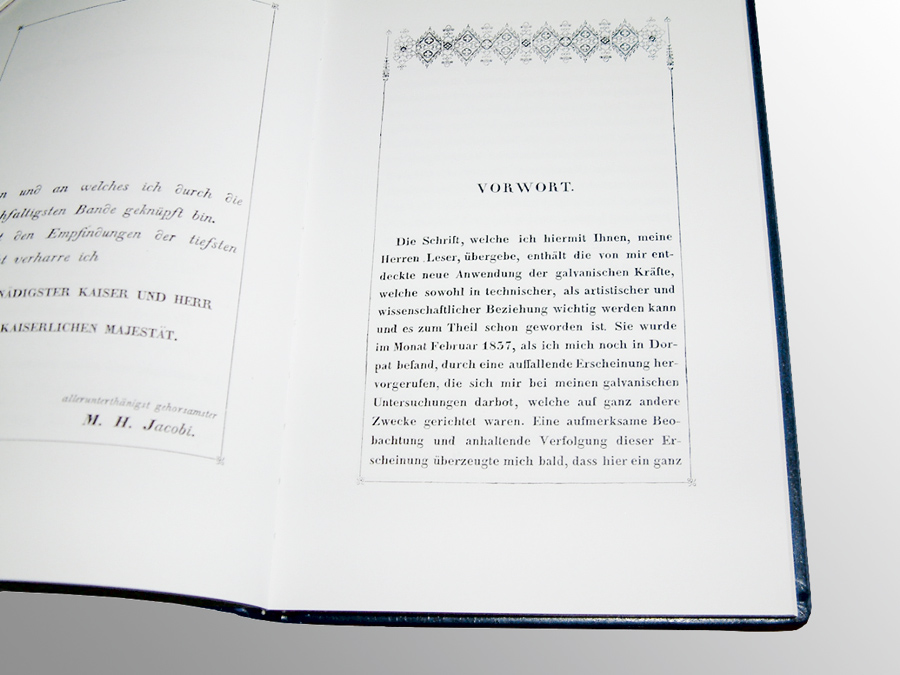 und an welches ich durch die
geknüpft bin.
den Empfindungen der tiefsten
verharre ich
KAISER UND HERR
KAISERLICHEN MAJESTÄT.
allerunterthänigst gehorsamster
M. H. Jacobi.
VORWORT.
Die Schrift, welche ich hiermit Ihnen, meine
Herren Leser, übergebe, enthält die von mir ent-
deckte neue Anwendung der galvanischen Kräfte,
welche sowohl in technischer, als artistischer und
wissenschaftlicher Beziehung wichtig werden kann
und es zum Theil schon geworden ist. Sie wurde
im Monat Februar 1837, als ich mich noch in Dor-
pat befand, durch eine auffallende Erscheinung her-
vorgerufen, die sich mir bei meinen galvanischen
Untersuchungen darbot, welche auf ganz andere
Zwecke gerichtet waren. Eine aufmerksame Beo-
bachtung und anhaltende Verfolgung dieser Er-
scheinung überzeugte mich bald, dass hier ein ganz